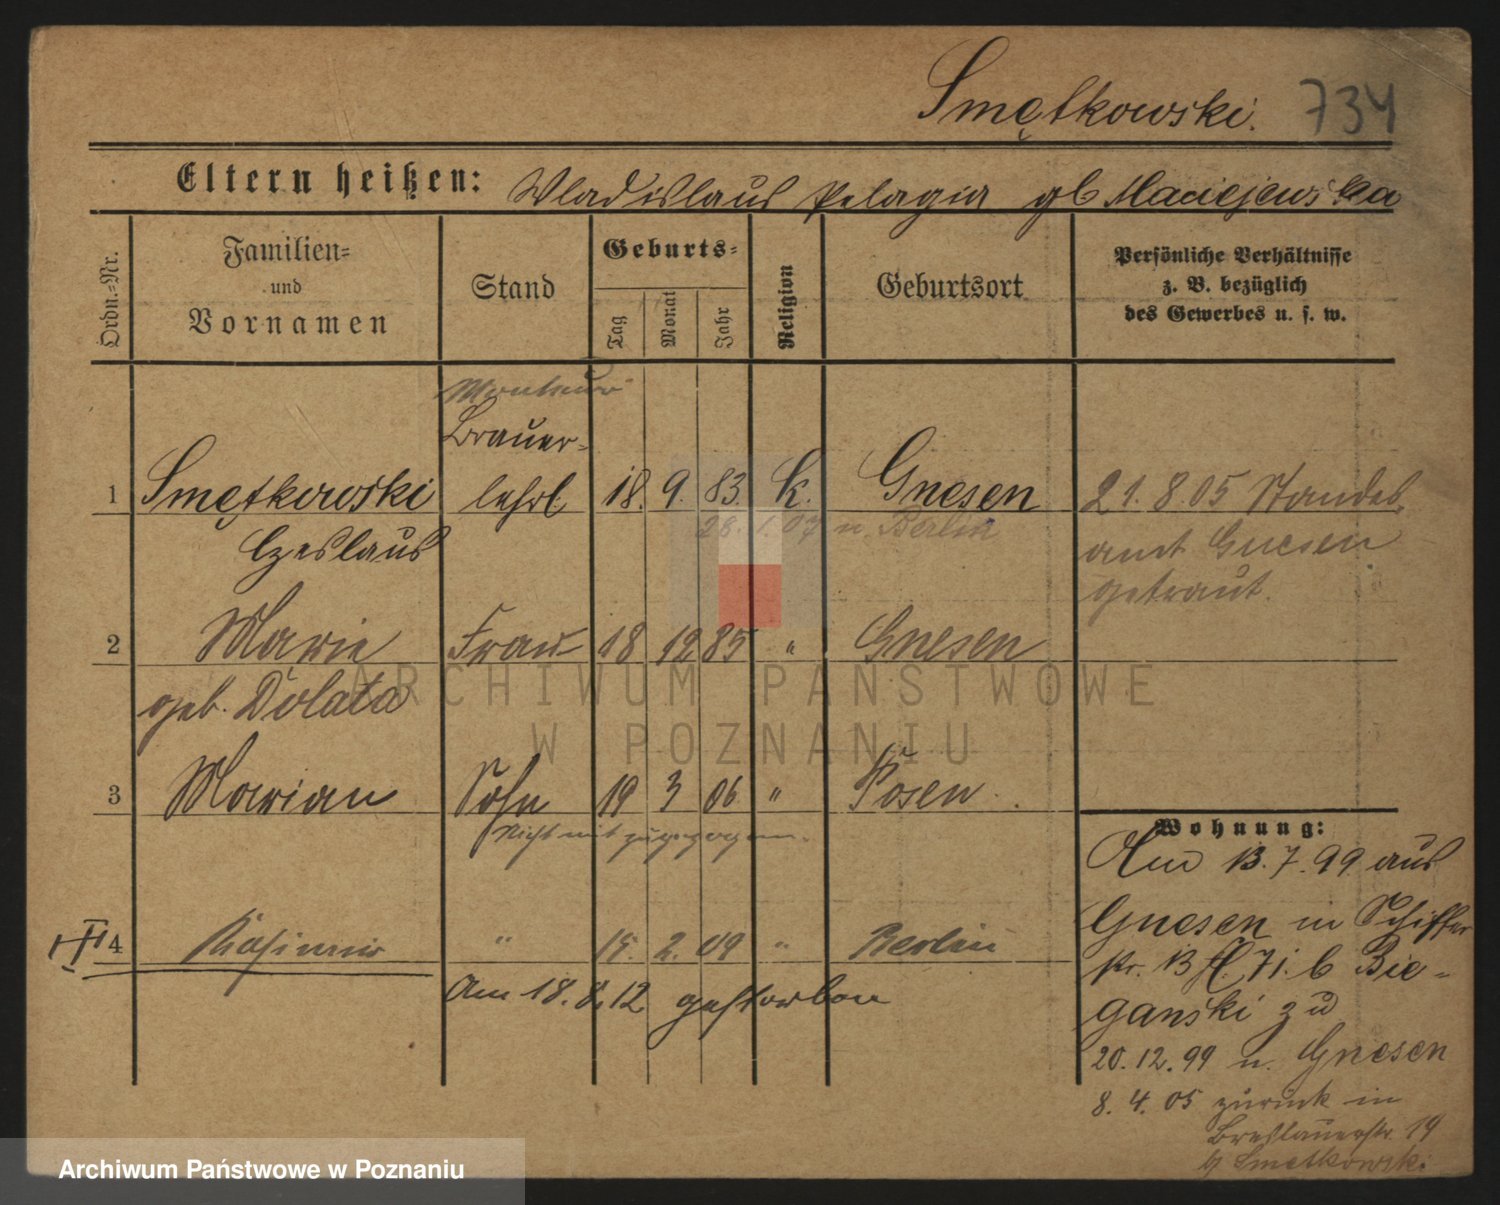 Smętkowski. 734
Eltern heißen: Wladislaus Pelagia gb Maciejewska
Ordn.=Nr. Familien= und Vornamen Stand Geburts= Tag Monat Jahr Religion Geburtsort Persönliche Verhältnisse z. B. bezüglich des Gewerbes u. s. w.
Monteur
Brauer=
1 Smętkowski lehrl. 18. 9. 83. k. Gnesen 21.8.05 Standes
28.1.07 n. Berlin
Czeslaus amt Gnesen
getraut.
2 Marie Frau 18 12 85 " Gnesen
geb. Dolata
3 Marian Sohn 19 3 06 " Posen
Nicht mit zugezogen.
Wohnung:
Am 13.7.99 aus
Gnesen in Schiffer
4 Kasimir " 15. 2. 09 " Berlin
str. 13 H. 71. b Bie-
Am 18.8.12 gestorben
ganski zu
20.12.99 n. Gnesen
8. 4. 05 zurück in
Breslauerstr. 14
b Smetkowski
ARCHIWUM PAŃSTWOWE
W POZNANIU
Archiwum Państwowe w Poznaniu